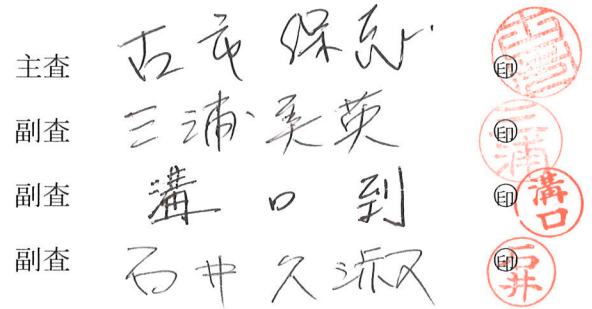 主査 古市 保志 印
副査 三浦美英 印 三浦
副査 溝口到 印 溝口
副査 石井久淑 印 石井